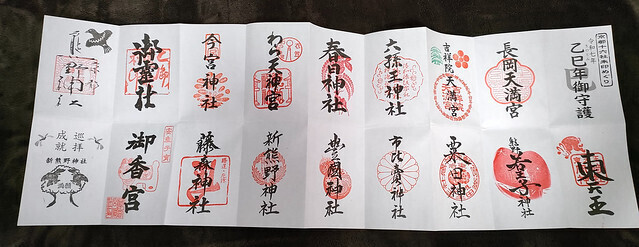 京都十六社朱印めぐり
令和七年
乙巳年御守護
長岡天満宮
吉祥院
天満宮
六孫王神社
春日神社
わら天神宮
今宮神社
御靈社
東天王
熊野
若王子
神社
粟田神社
市比賣神社
豊國神社
新熊野神社
藤森神社
御香宮
巡拝
成就
新熊野神社
満願